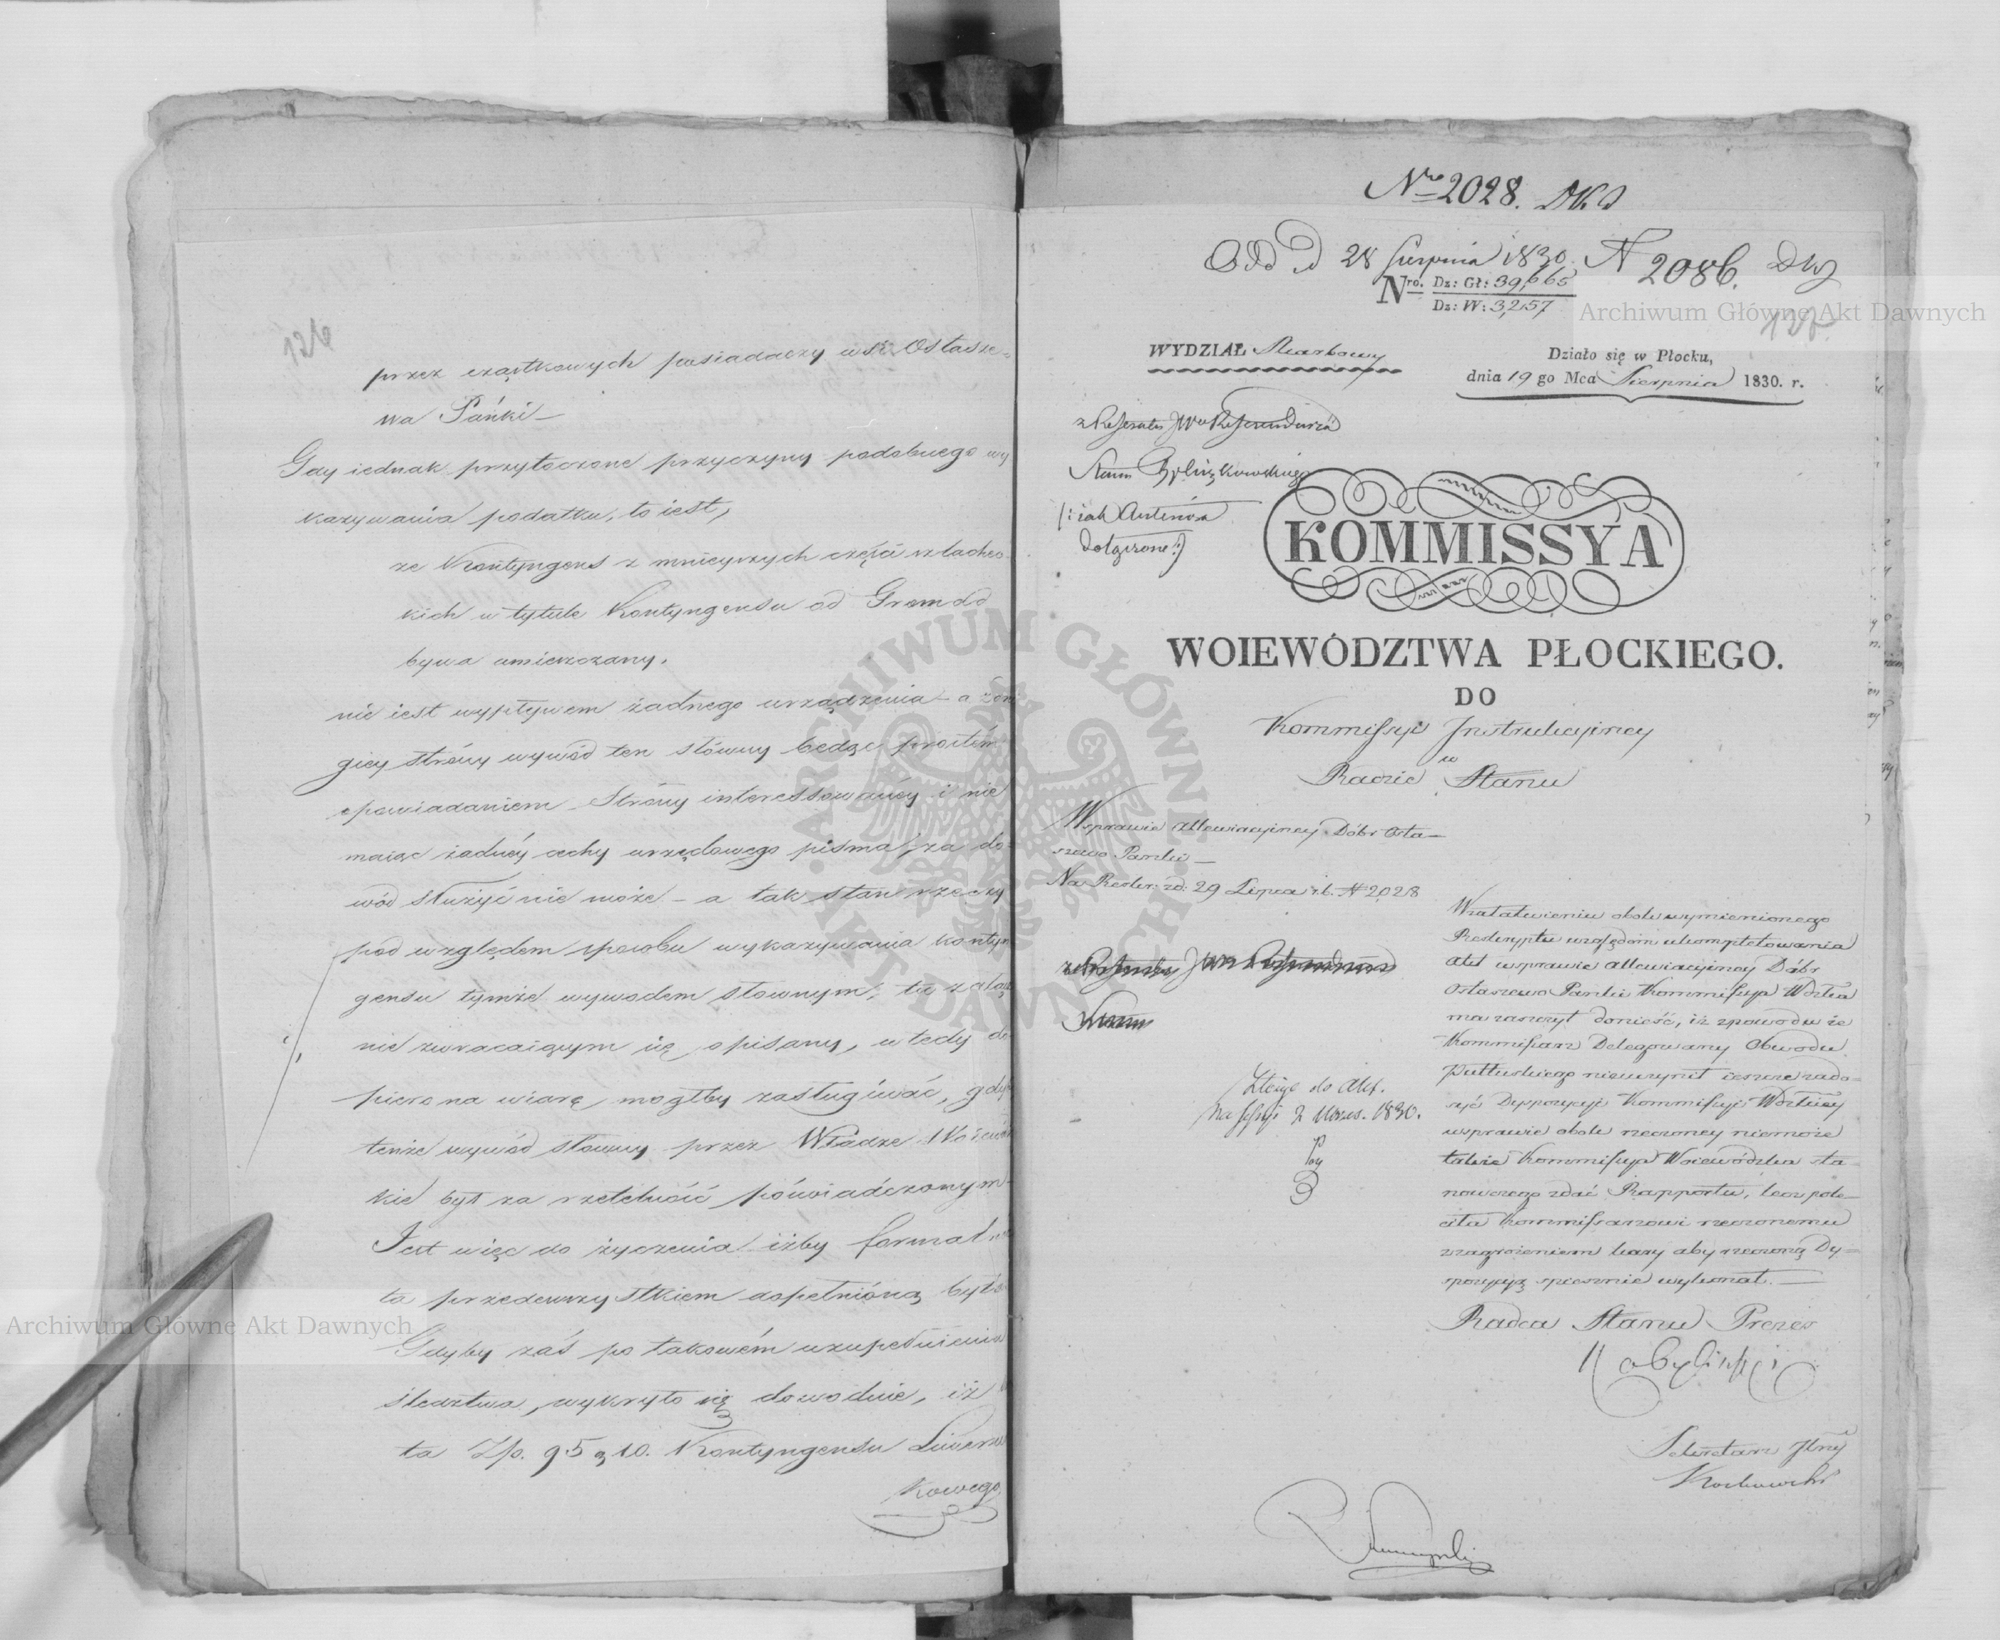 126
przez cząstkowych posiadaczy wsi Ostasze-
wa Pańki —
Gdy iednak przytoczone przyczyny podobnego wy
kazywania podatku, to iest,
że Kontyngens z mnieyszych części szlachec-
kich w tytule Kontyngensu od Gromad
bywa umieszczany,
nie iest wypływem żadnego urządzenia — a
giey strony wywód ten słowny będąc prostem
opowiadaniem Strony interessowaney i nie
maiąc żadney cechy urzędowego pisma, za do-
wód służyć nie może — a tak stan rzeczy
pod względem sposobu wykazywania kontyn
gensu tymże wywodem słownym,
nie zwracaiącym się, opisany, wtedy do
piero na wiarę mogłby zasługiwać, gdy
tenże wywód słowny przez Władze
kie był za rzetelność poświadczonym —
Jest więc do życzenia iżby formalno
ta przedewszystkiem dopełnioną była
Gdyby zaś po takowém uzupełnieniu
śledztwa, wykryło się dowodnie, iż
ta Złp. 95 g 10. Kontyngensu Liweran
kowego
Nro 2028. DKS
28 Sierpnia 1830. N 2086.
Nro. Dz: Gł: 39,665
Dz: W: 3,257
127.
WYDZIAŁ Skarbowy
Działo się w Płocku,
dnia 19 go Mca Sierpnia 1830. r.
z Referatu JW Referendarza
Stanu
/: iak Anteriora
dołączone :/
KOMMISSYA
WOIEWÓDZTWA PŁOCKIEGO.
DO
Kommissyi Instrukcyiney
w
Radzie Stanu
W sprawie allewiacyiney Dóbr Osta-
szewo Pańki —
Na Reskr: zd: 29 Lipca r.b. N 2028
W załatwieniu obok wymienionego
Reskryptu względem ukompletowania
Akt w sprawie allewiacyiney Dóbr
Ostaszewo Pańki Kommissya Wdzka
ma zaszczyt donieść, iż z powodu że
Kommissarz Delegowany Obwodu
Pułtuskiego nieuczynił ieszcze zado-
syć Dyspozycyi Kommissyi Wdzkiey
w sprawie obok rzeczoney niemoże
także Kommissya Woiewódzka sta-
nowczego zdać Rapportu, lecz pole-
ciła Kommissarzowi rzeczonemu
z zagrożeniem kary aby rzeczoną Dy-
spozycyą spiesznie wykonał. —
Złożyć do Akt.
Na Sessyi 2 Wrześ. 1830.
Radca Stanu Prezes
Kobyliński
Sekretarz Jlny
Archiwum Główne Akt Dawnych
Archiwum Główne Akt Dawnych
ARCHIWUM GŁÓWNE AKT DAWNYCH